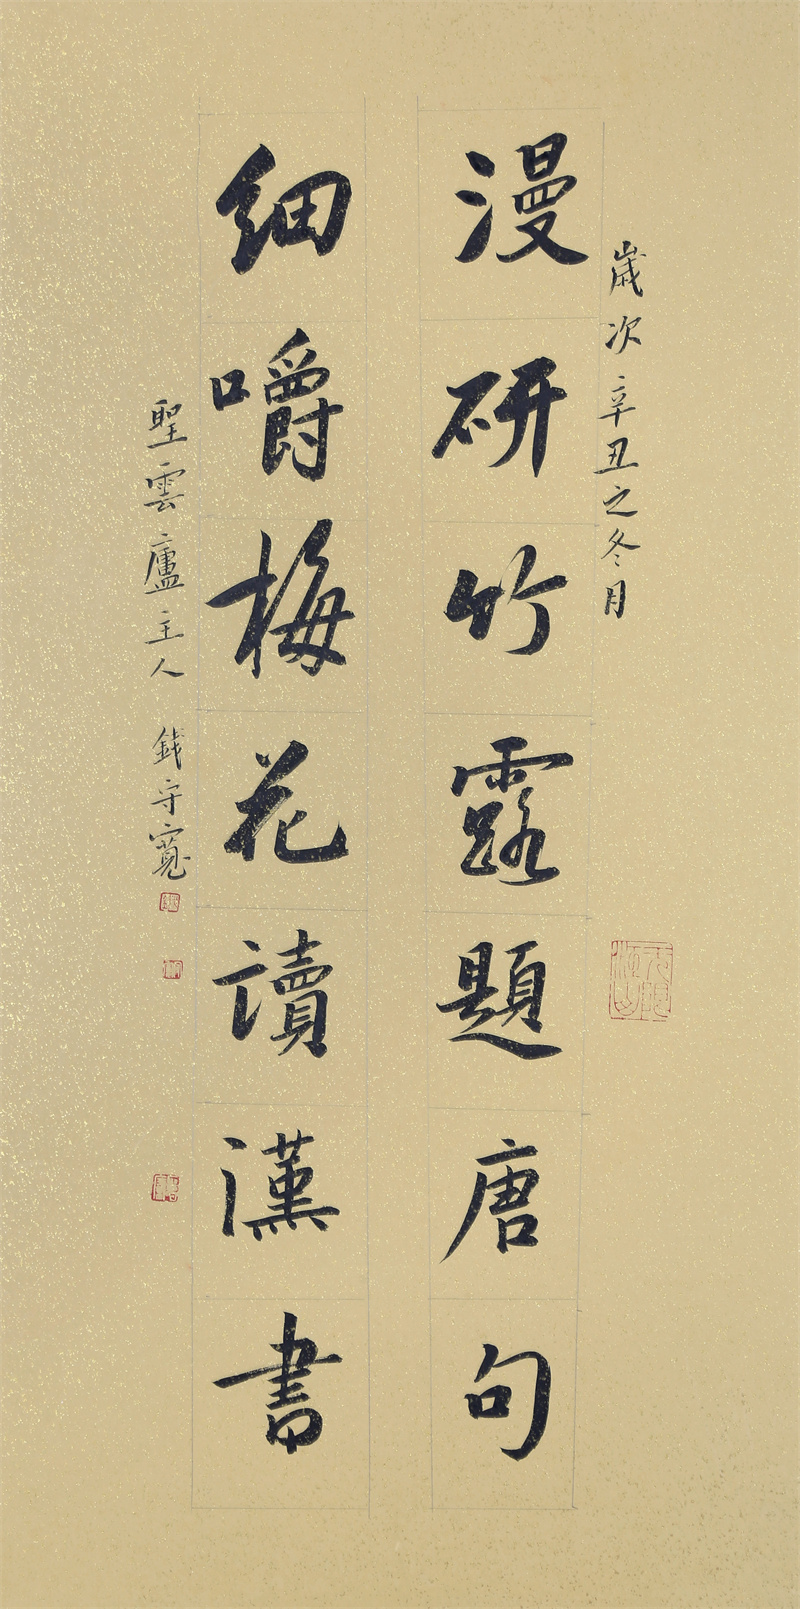 歲次辛丑之冬月
漫研竹露題唐句
細嚼梅花讀漢書
聖雲廬主人 錢守寬